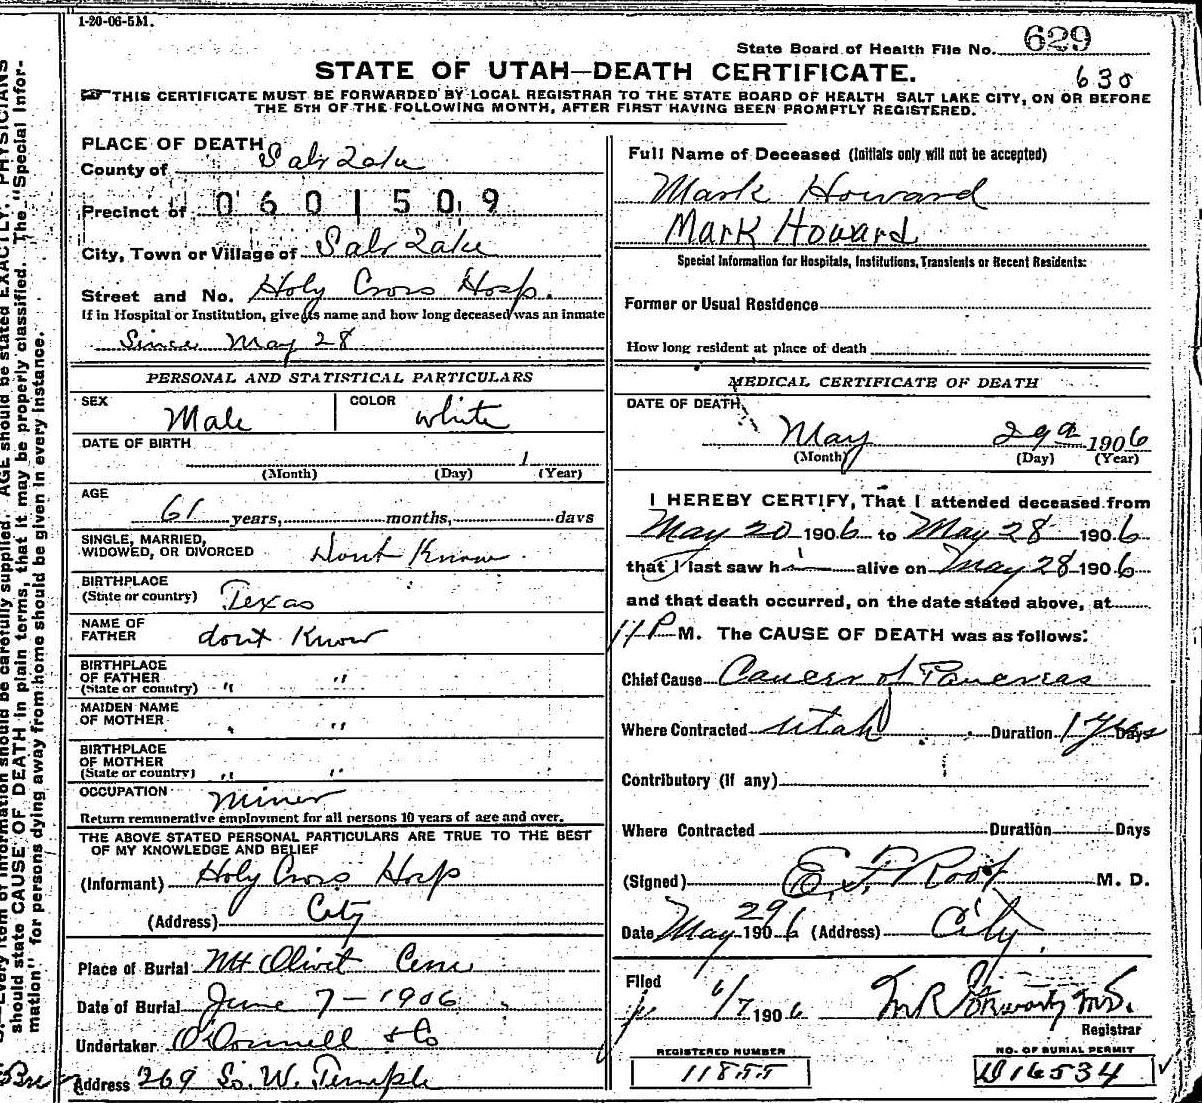 1-20-06-5M.
State Board of Health File No. 629
STATE OF UTAH—DEATH CERTIFICATE.
630
THIS CERTIFICATE MUST BE FORWARDED BY LOCAL REGISTRAR TO THE STATE BOARD OF HEALTH SALT LAKE CITY, ON OR BEFORE
THE 5TH OF THE FOLLOWING MONTH, AFTER FIRST HAVING BEEN PROMPTLY REGISTERED.
PLACE OF DEATH
County of Salt Lake
Precinct of 0601509
City, Town or Village of Salt Lake
Street and No. Holy Cross Hosp.
If in Hospital or Institution, give its name and how long deceased was an inmate
Since May 28
PERSONAL AND STATISTICAL PARTICULARS
SEX Male COLOR white
DATE OF BIRTH
1
(Month) (Day) (Year)
AGE
61 years, months, days
SINGLE, MARRIED,
WIDOWED, OR DIVORCED Dont Know.
BIRTHPLACE
(State or country) Texas
NAME OF
FATHER dont Know
BIRTHPLACE
OF FATHER
(State or country) " "
MAIDEN NAME
OF MOTHER " "
BIRTHPLACE
OF MOTHER
(State or country) " "
OCCUPATION Miner
Return remunerative employment for all persons 10 years of age and over.
THE ABOVE STATED PERSONAL PARTICULARS ARE TRUE TO THE BEST
OF MY KNOWLEDGE AND BELIEF
(Informant) Holy Cross Hosp
(Address) City
Place of Burial Mt Olivit Cem
Date of Burial June 7-1906
Undertaker O'Donnell & Co
Address 269 So. W. Temple
Full Name of Deceased (Initials only will not be accepted)
Mark Howard
Mark Howard
Special Information for Hospitals, Institutions, Transients or Recent Residents:
Former or Usual Residence
How long resident at place of death
MEDICAL CERTIFICATE OF DEATH
DATE OF DEATH
May 29 1906
(Month) (Day) (Year)
I HEREBY CERTIFY, That I attended deceased from
May 20 1906 to May 28 1906
that I last saw h alive on May 28 1906
and that death occurred, on the date stated above, at
11 P M. The CAUSE OF DEATH was as follows:
Chief Cause Cancer of Pancreas
Where Contracted Utah Duration 1 Year Days
Contributory (If any)
Where Contracted Duration Days
(Signed) E. F. Root M. D.
Date May 29 1906 (Address) City.
Filed 6/7 1906 M.D.
Registrar
REGISTERED NUMBER
11855
NO. OF BURIAL PERMIT
D16534
AGE should be stated EXACTLY. PHYSICIANS
should state CAUSE OF DEATH in plain terms, that it may be properly classified. The "Special Infor-
mation" for persons dying away from home should be given in every instance.